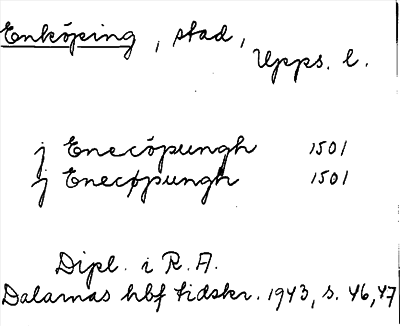 Enköping, stad,
Upps. l.
j Enecöpungh 1501
j Enecøpungh 1501
Dipl. i R.A.
Dalarnas hbf tidskr. 1943, s. 46,47